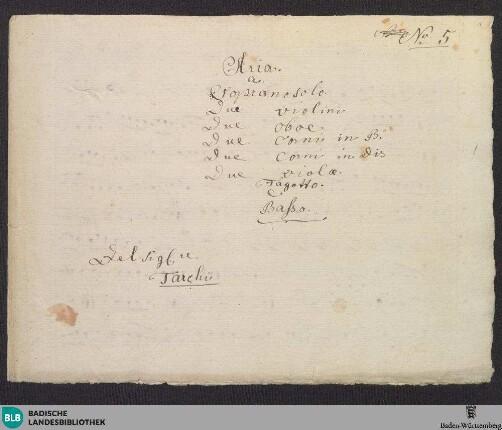 No 5
Aria
a
Soprano solo
Due violini
Due oboe
Due Corni in B.
Due Corni in Dis
Due violæ
Fagotto.
e
Basso.
Del Sigre
Tarchi
BLB BADISCHE
LANDESBIBLIOTHEK
Baden-Württemberg